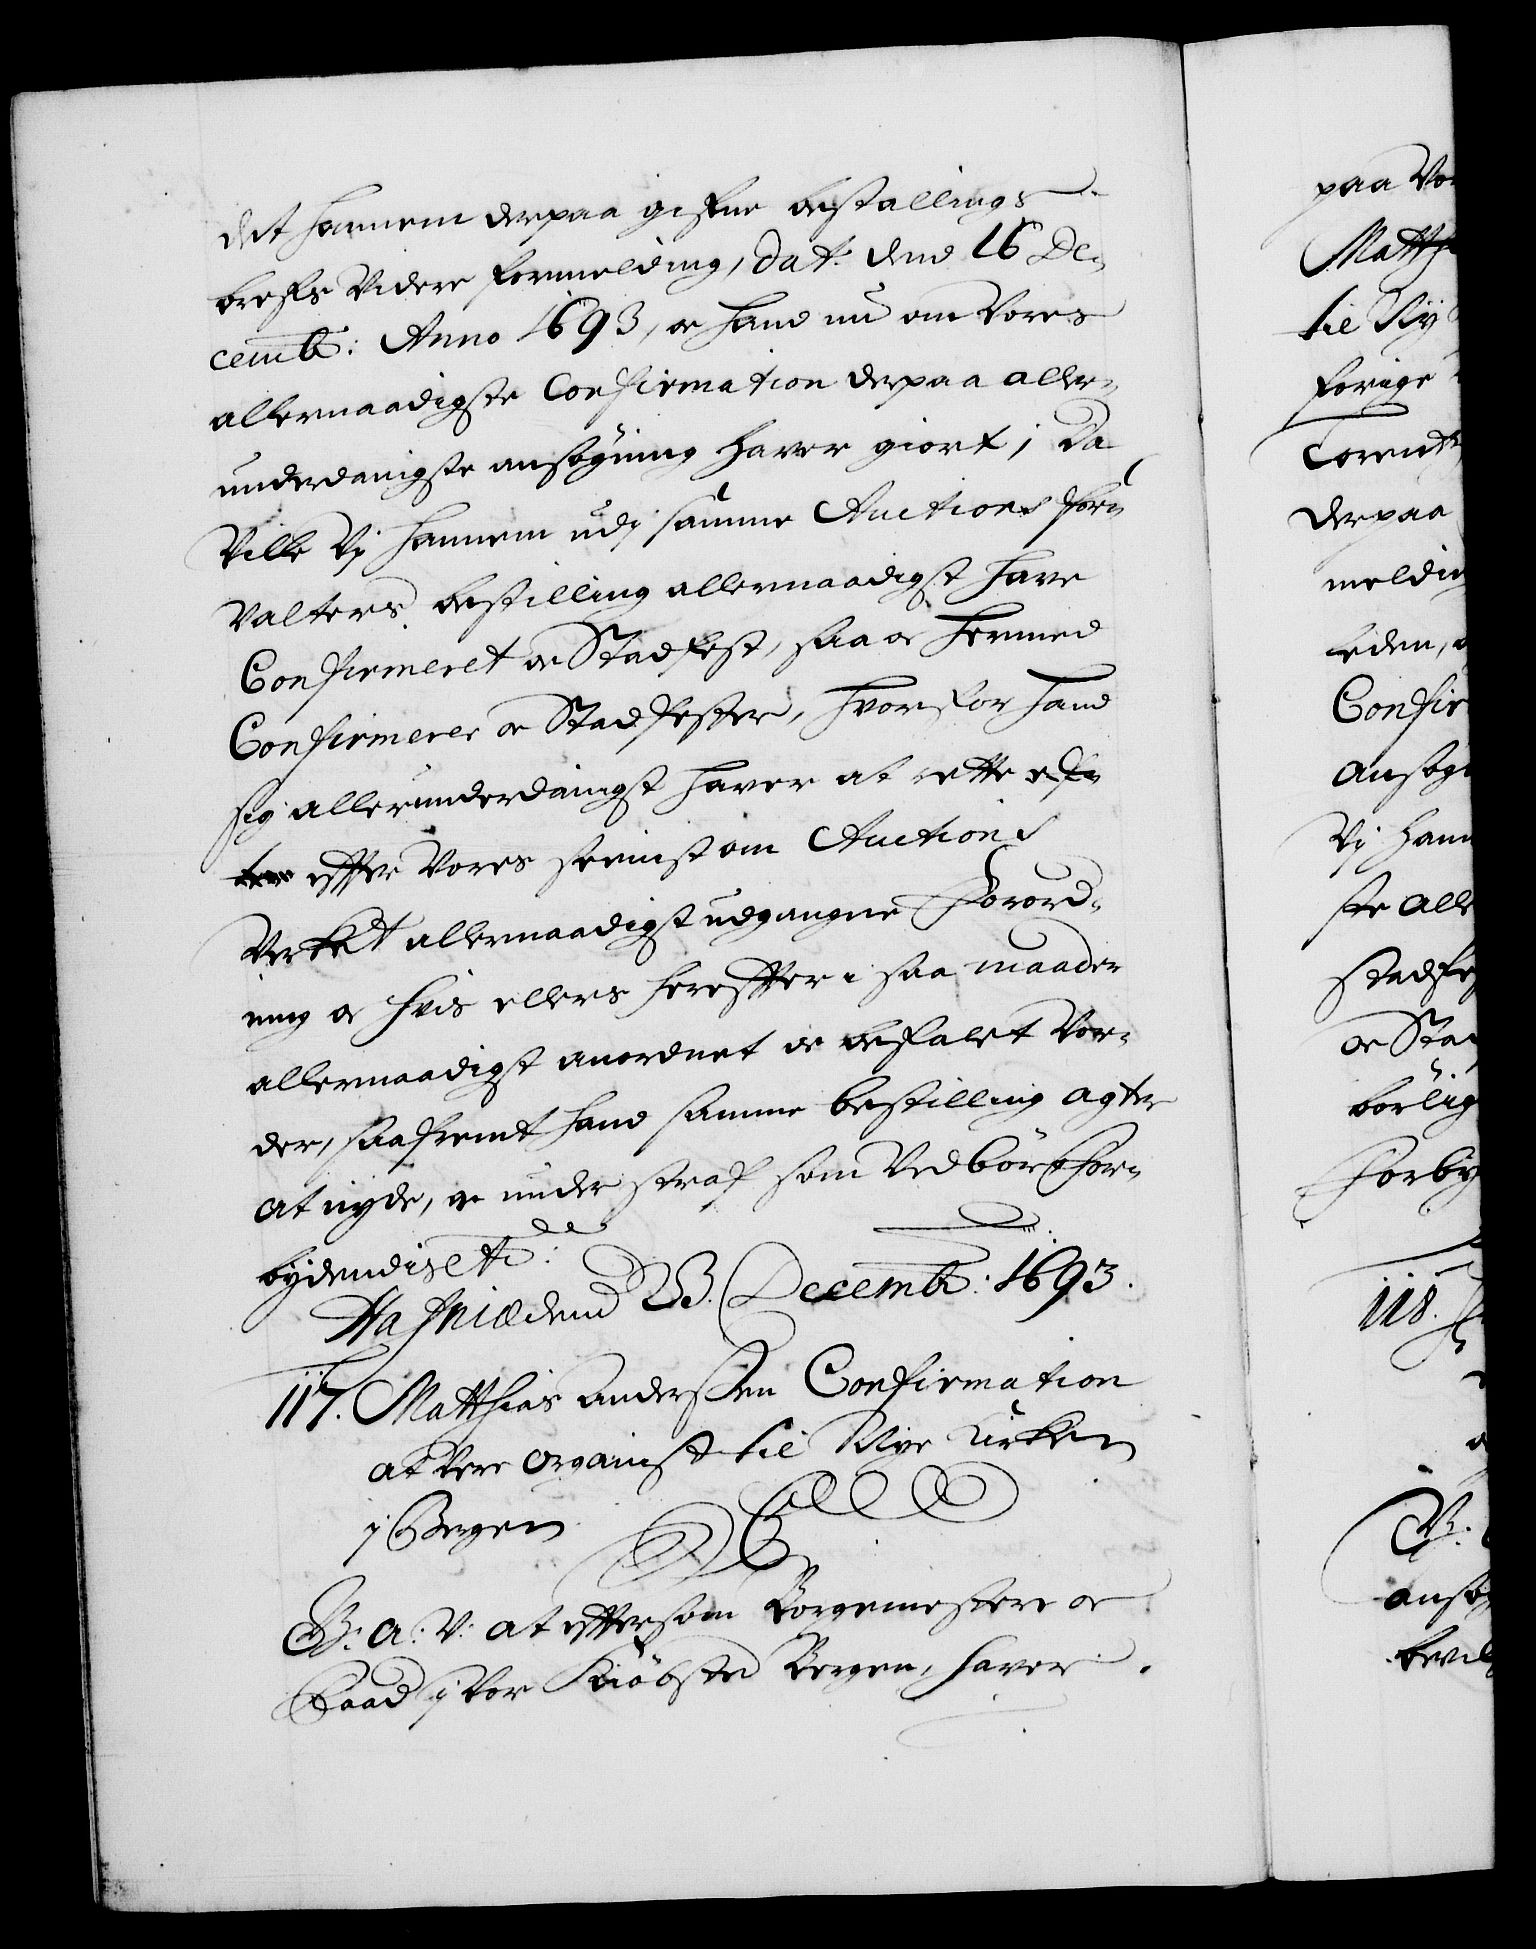 det hannem derpaa gifne bestallings
brefs videre formelding, dat: dend 16 De-
cemb: Anno 1693, oc hand nu om Vores
allernaadigste Confirmation derpaa aller-
underdanigste ansøgning haver giort; Da
Ville Vj hannem udj samme Auctions for-
valters bestilling allernaadigst have
Confirmeret oc Stadfest, saa oc hermed
Confirmerer oc Stadfester, hvorfor hand
sig allerunderdanigst haver at rette
effter Vores seenist om Auctions
Verket allernaadigst udgangne Forord-
ning oc hvis ellers hereffter i saa maader
allernaadigst anordnet oc befalet Vor-
der, saafremt hand samme bestilling agter
at nyde, oc under straf som Vedbør. For-
bydendis etc:
Hafniæ dend 23. Decemb: 1693.
117. Matthias Anderssen Confirmation
at Vere Organist til Nye Kirken
j Bergen
G: A: V: at effttersom Borgemestere oc
Raad j Vor Kiöbsted Bergen, haver
paa Vor
Matth
til Ny
forige
derpaa
melding
eden,
Confir
ansøg
Vj hann
ste alle
stadfe
oc Stad
børlig
Forby
118.
ansøg
bevil